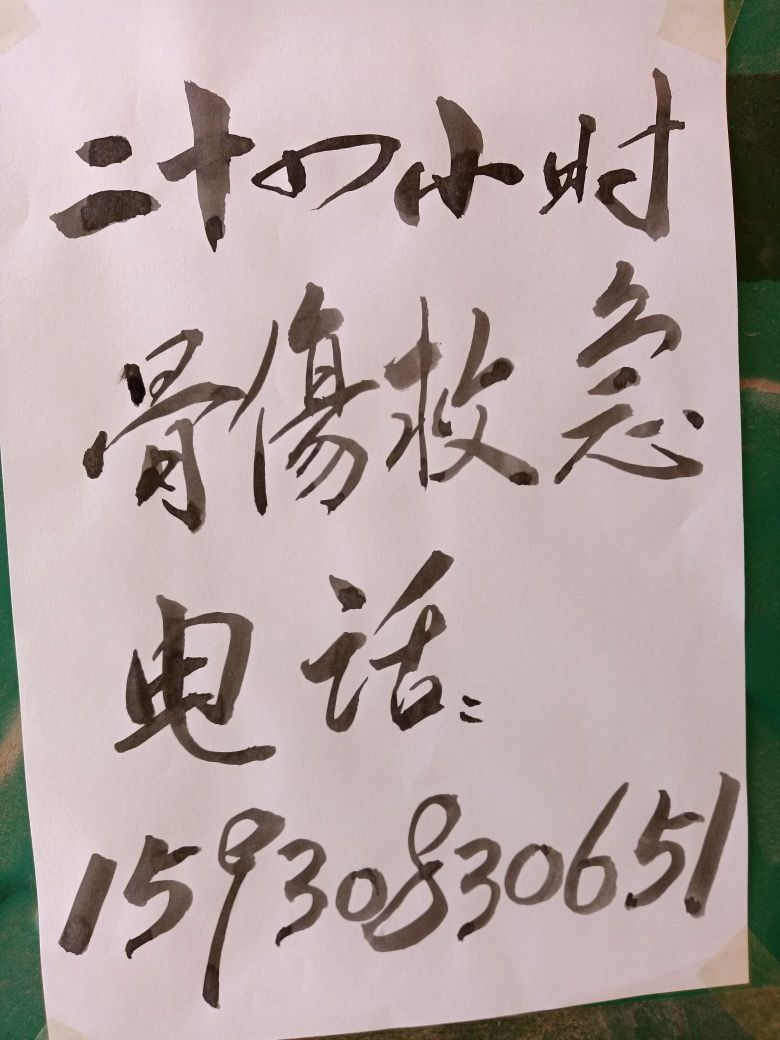 二十四小时
骨傷救急
电话:
15930830651